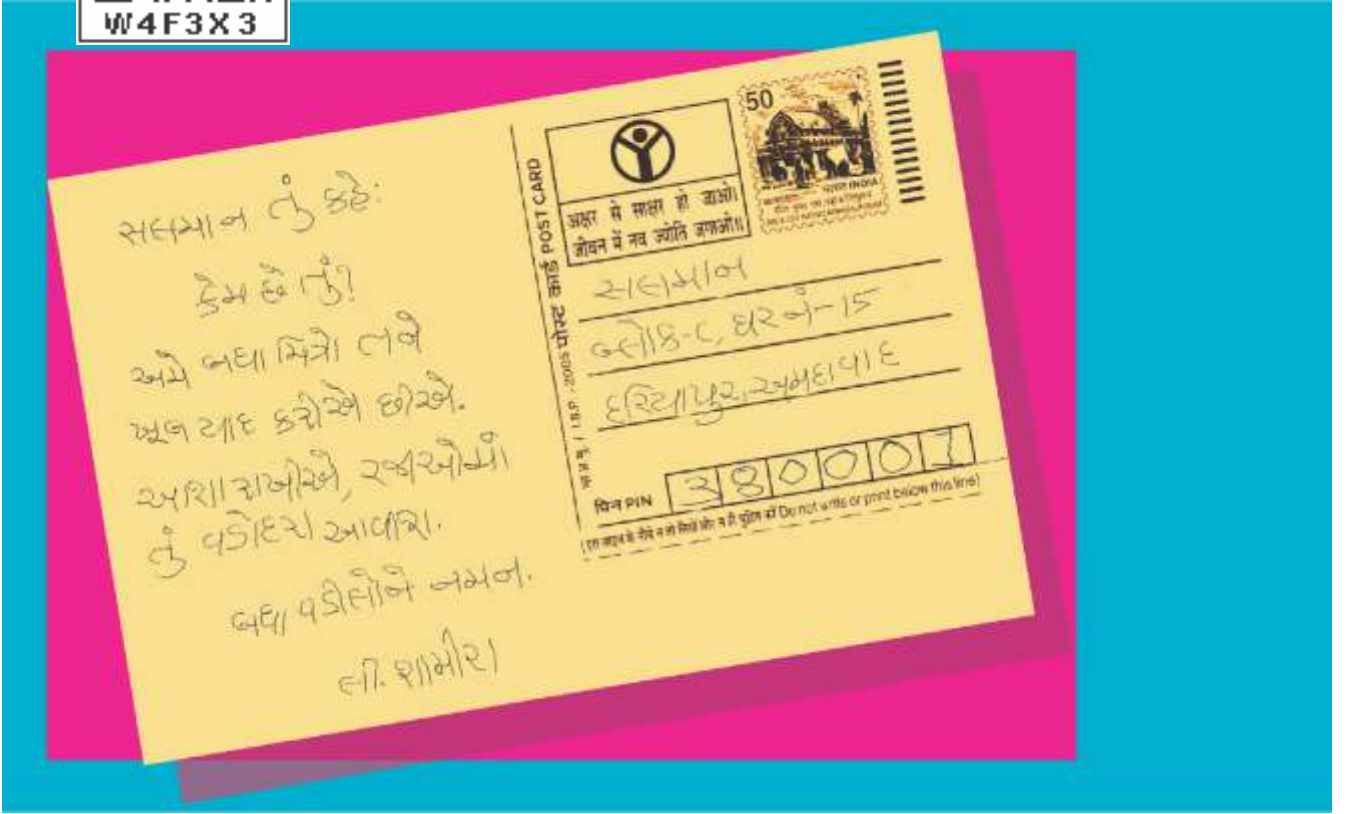 W4F3X3
સલમાન તું કહે:
કેમ છે તું?
અમે બધા મિત્રો તને
ખૂબ યાદ કરીએ છીએ.
આશા રાખીએ, રજાઓમાં
તું વડોદરા આવીશ.
બધા વડીલોને નમન.
લી. શામીરા
पोस्ट कार्ड POST CARD
अक्षर से साक्षर हो जाओ।
जीवन में नव ज्योति जगाओ॥
50
भारत INDIA
સલમાન
બ્લોક-૮, ઘર નં-15
દરિયાપુર, અમદાવાદ
पिन PIN 380001
(इस लाइन के नीचे न तो लिखें और न ही मुद्रित करें Do not write or print below this line)